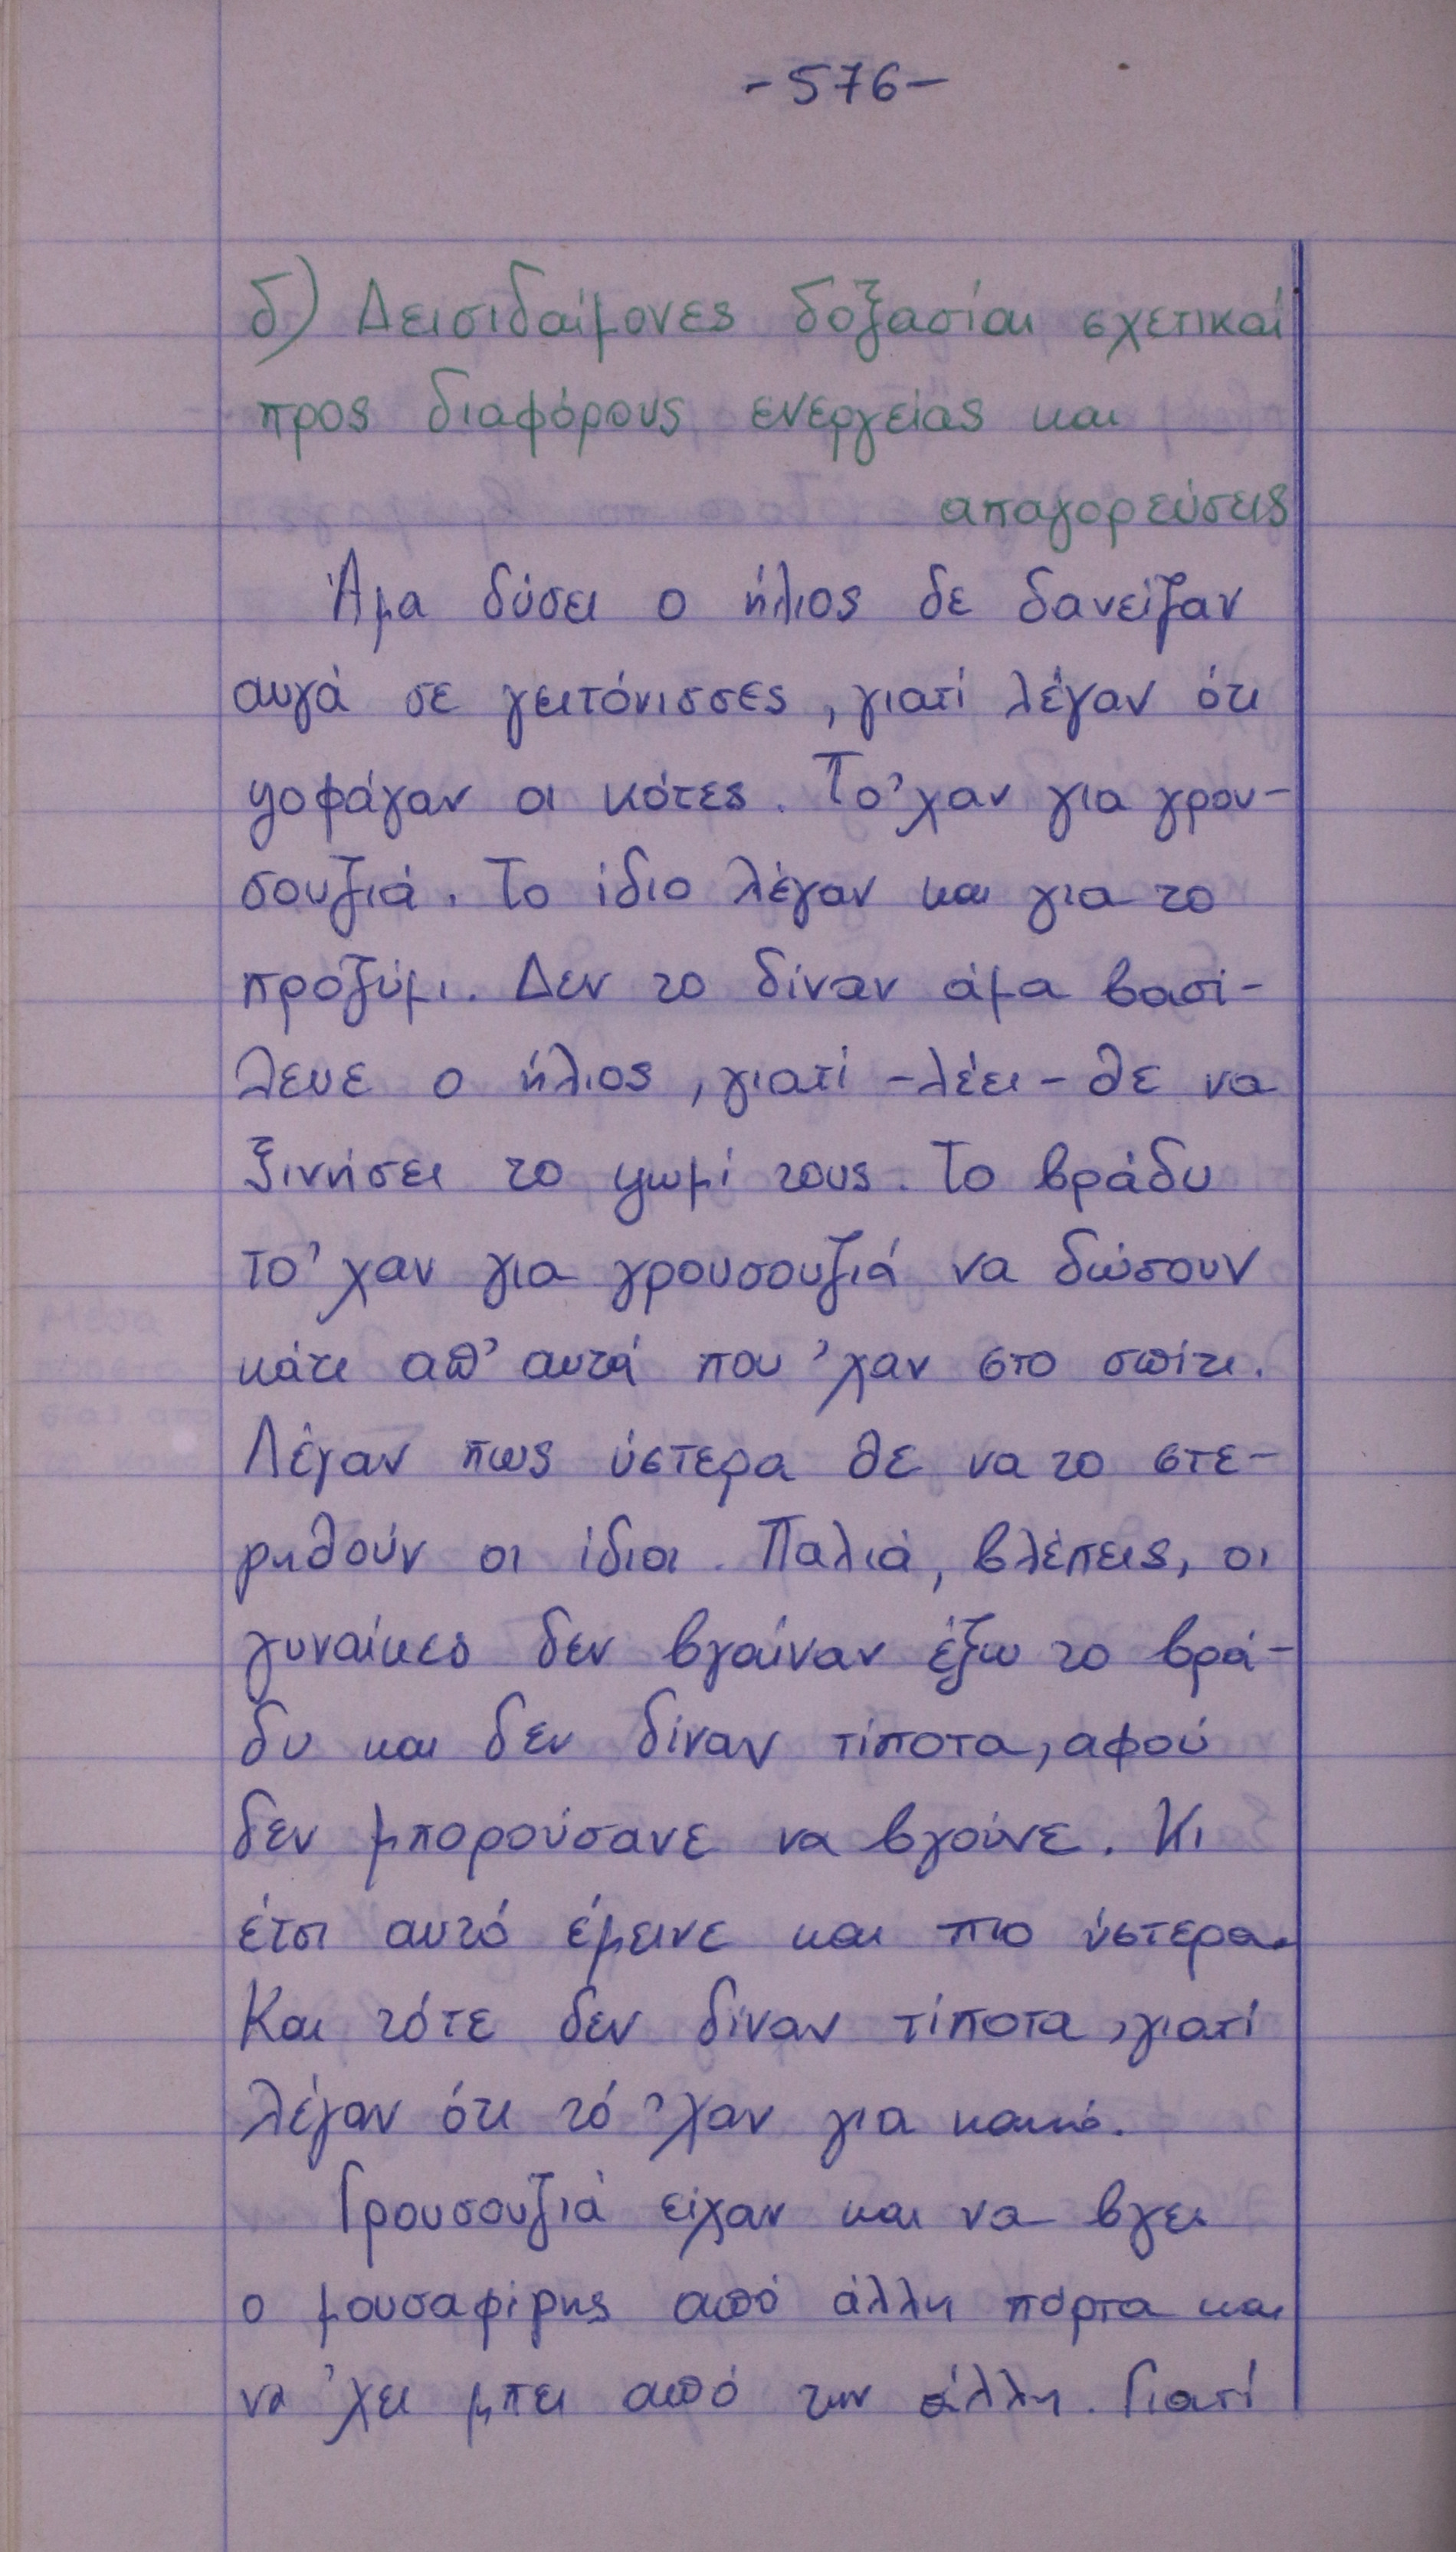 -576-
δ) Δεισιδαίμονες δοξασίαι σχετικαί
προς διαφόρους ενεργείας και
απαγορεύσεις
Άμα δύσει ο ήλιος δε δανείζαν
αυγά σε γειτόνισσες, γιατί λέγαν ότι
ψοφάγαν οι κότες. Το'χαν για γρου-
σουζιά. Το ίδιο λέγαν και για το
προζύμι. Δεν το δίναν άμα βασί-
λευε ο ήλιος, γιατί -λέει- θε να
ξινήσει το ψωμί τους. Το βράδυ
το'χαν για γρουσουζιά να δώσουν
κάτι απ' αυτά που 'χαν στο σπίτι.
Λέγαν πως ύστερα θε να το στε-
ρηθούν οι ίδιοι. Παλιά, βλέπεις, οι
γυναίκες δεν βγαίναν έξω το βρά-
δυ και δεν δίναν τίποτα, αφού
δεν μπορούσανε να βγούνε. Κι
έτσι αυτό έμεινε και πιο ύστερα.
Και τότε δεν δίναν τίποτα, γιατί
λέγαν ότι τό 'χαν για κακό.
Γρουσουζιά είχαν και να βγει
ο μουσαφίρης από άλλη πόρτα και
να 'χει μπει από την άλλη. Γιατί